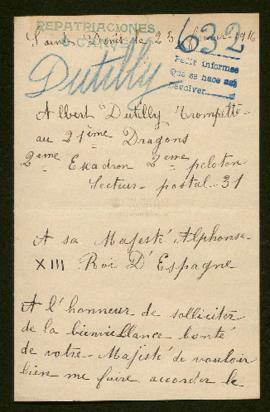 REPATRIACIONES
632
Petit informes
Que se hace
devolver
Dutilly
Albert Dutilly Trompette
au 21ème Dragons
2ème Escadron 2ème peloton
Secteur postal 31
A sa Majesté Alphonse
XIII Roi D'Espagne
A l'honneur de solliciter
de la bienveillance bonté
de votre Majesté de vouloir
bien me faire accorder le